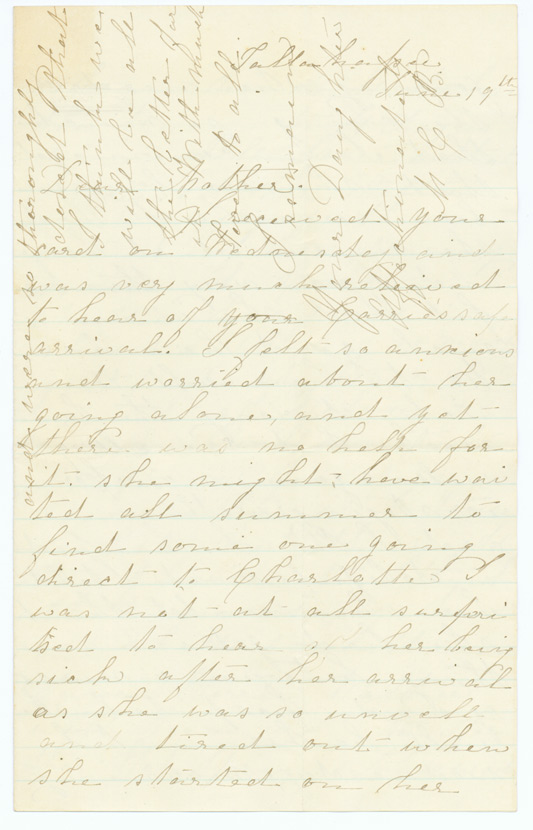 Tallahassee
June 19th
Dear Mother.
I received your
card on Wednesday and
was very much relieved
to hear of your Carrie's safe
arrival. I felt so anxious
and worried about her
going alone, and yet
there was no help for
it. she might have wai
ted all summer to
find some one going
direct to Charlotte I
was not at all surpri
sed to hear of her being
sick after her arrival
as she was so unwell
and tired out when
she started on her
and were so thoroughly
that
I think we
will be all
the better for
With much
love to all
I remain
Your Daughter
Affectionately
M C B.